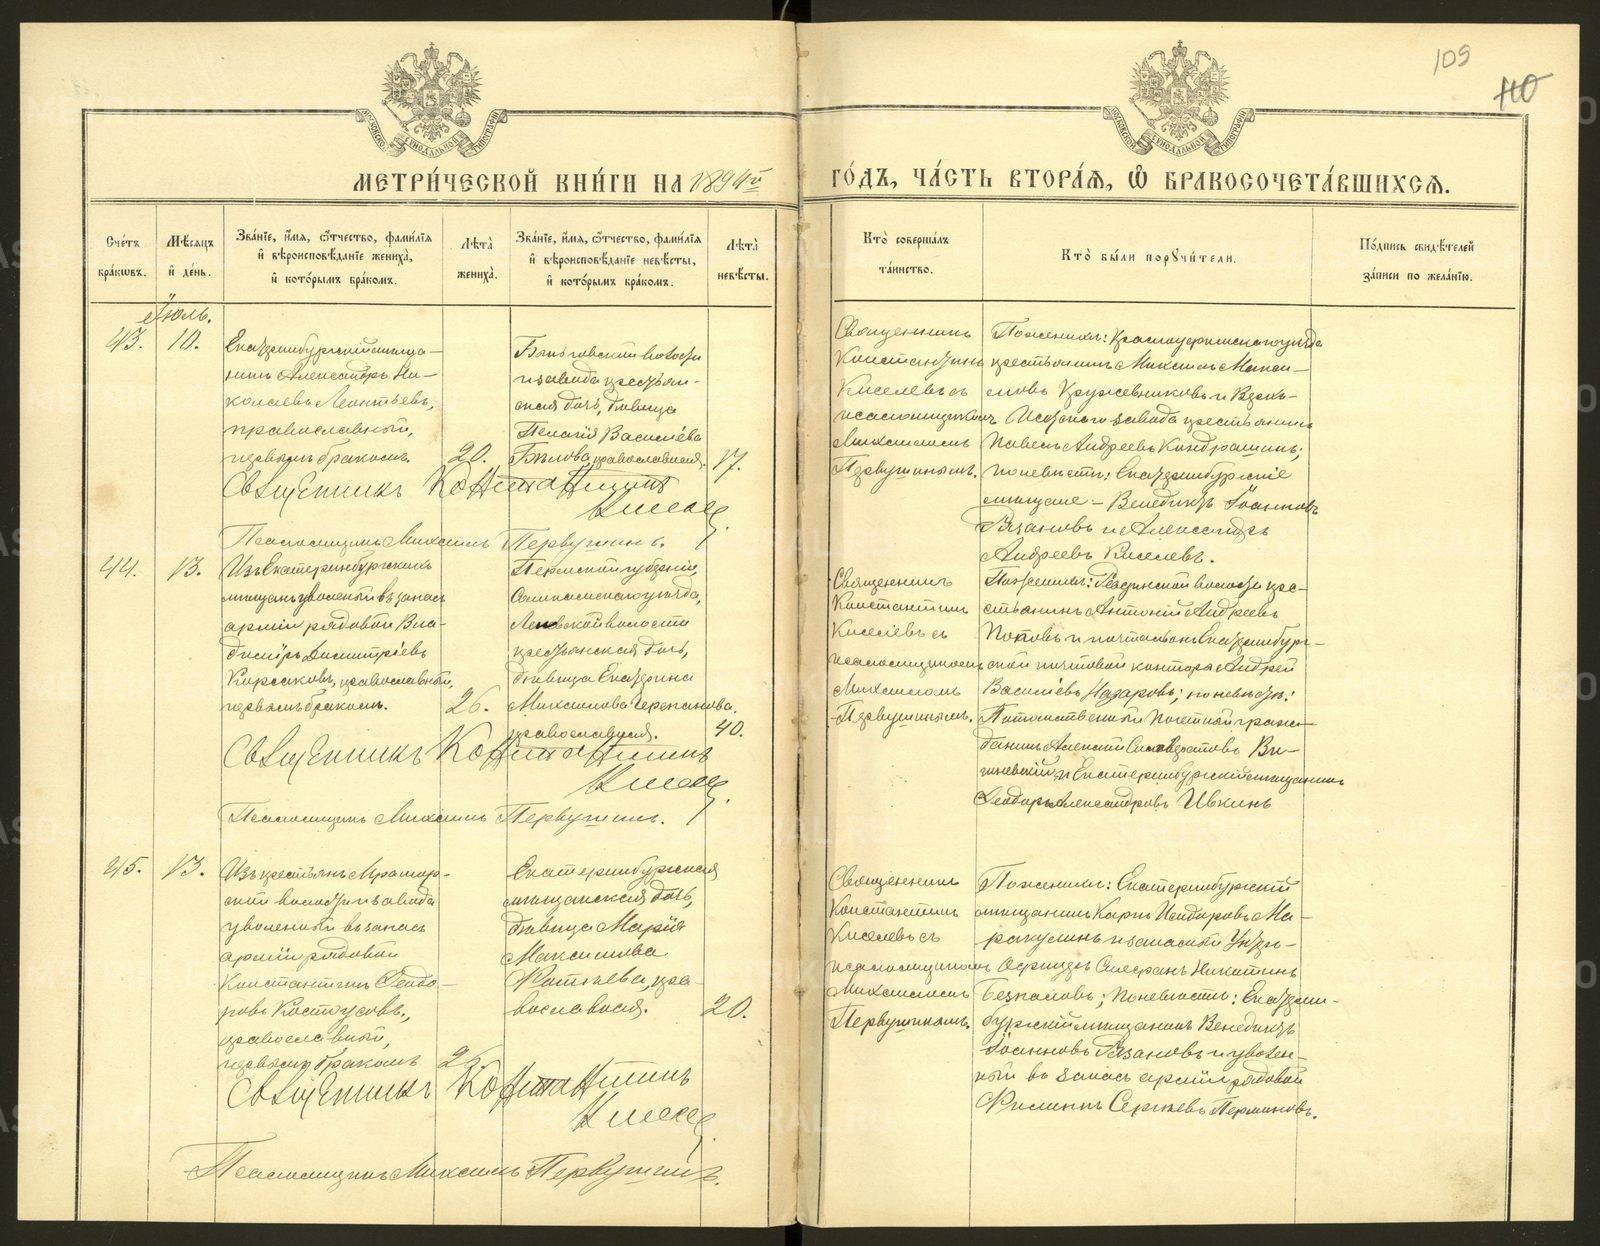 109
110
МЕТРИ́ЧЕСКОЙ КНИ́ГИ НА 1894й
ГО́ДЪ, ЧА́СТЬ ВТОРА́Я, Ѿ БРАКОСОЧЕТА́ВШИХСЯ.
Сче́тъ бра́кѡвъ.
Мѣ́сяцъ и҆ де́нь.
Зва́нїе, и҆́мя, ѻ҆́тчество, фами́лїя и҆ вѣроисповѣ́данїе жениха̀, и҆ кото́рымъ бра́комъ.
Лѣ́та жениха̀.
Зва́нїе, и҆́мя, ѻ҆́тчество, фами́лїя и҆ вѣроисповѣ́данїе невѣ́сты, и҆ кото́рымъ бра́комъ.
Лѣ́та невѣ́сты.
Кто̀ соверша́лъ та́инство.
Кто̀ бы́ли порꙋчи́тели.
По́дпись свидѣ́телей за́писи по жела́нїю.
Іюль.
43.
10.
Екатеринбургскій мѣща-
нинъ Александръ Ни-
колаевъ Леонтьевъ,
православный,
первымъ бракомъ.
20.
волости
и завода крестьян-
ская дочь, дѣвица
Пелагія Васильева
Бѣлова, православная.
17.
Священникъ
Константинъ
Киселевъ съ
псаломщикомъ
Михаиломъ
Первушинымъ.
По женихѣ: Красноуфимскаго уѣзда
крестьянинъ Максимъ Мака-
ровъ Кружевниковъ и Верхъ-
Исетскаго завода крестьянинъ
Павелъ Андреевъ Кондрашинъ;
по невѣстѣ: Екатеринбургскіе
мѣщане - Венедиктъ Іоанновъ
Рязановъ и Александръ
Андреевъ Киселевъ.
Священникъ Константинъ
Киселевъ
Псаломщикъ Михаилъ Первушинъ.
44.
13.
Изъ Екатеринбургскихъ
мѣщанъ уволеный въ запасъ
арміи рядовой Вла-
диміръ Димитріевъ
Корсаковъ, православный,
первымъ бракомъ.
26.
Пермской губерніи,
Соликамскаго уѣзда,
Ленвской волости
крестьянская дочь,
дѣвица Екатерина
Михаилова Черепанова.
православная.
40.
Священникъ
Константинъ
Киселёвъ съ
псаломщикомъ
Михаиломъ
Первушинымъ.
По женихѣ: волости кре-
стьянинъ Антоній Андреевъ
Поповъ и почтальонъ Екатеринбург-
ской почтовой конторы Андрей
Васильевъ Назаровъ; по невѣстѣ:
Потомственный Почетный граж-
данинъ Алексѣй
и Екатеринбургскій мѣщанинъ
Ѳеодоръ Александровъ Ивкинъ
Священникъ Константинъ
Киселевъ
Псаломщикъ Михаилъ Первушинъ.
45.
13.
Изъ крестьянъ Мрамор-
ской волости и завода
уволенный въ запасъ
арміи рядовой
Константинъ Ѳеодо-
ровъ Костоусовъ,
православный,
первымъ бракомъ
25.
Екатеринбургская
мѣщанская дочь,
дѣвица Марія
Максимова
Фотѣева, пра-
вославная.
20.
Священникъ
Константинъ
Киселевъ съ
псаломщикомъ
Михаиломъ
Первушинымъ.
По женихѣ: Екатеринбургскій
мѣщанинъ Карпъ Исидоровъ Ма-
ракулинъ и запасный Унтеръ-
Офицеръ Стефанъ Никитинъ
Безпаловъ; По невѣстѣ: Екатерин-
бургскій мѣщанинъ Венедиктъ
Іоанновъ Рязановъ и уволен-
ный въ запасъ арміи рядовой
Филиппъ Сергѣевъ Перминовъ.
Священникъ Константинъ
Киселевъ
Псаломщикъ Михаилъ Первушинъ.